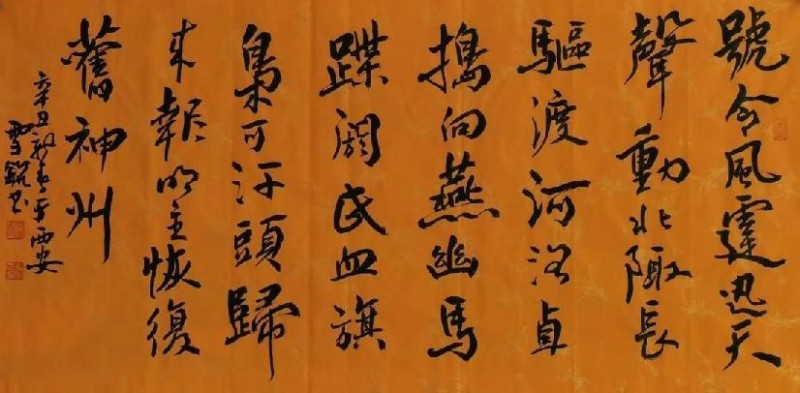 號令風霆迅天
聲動北陬長
驅渡河洛直
搗向燕幽馬
蹀閼氏血旗
梟可汗頭歸
来報明主恢復
舊神州
辛丑新春于西安
雪銘书